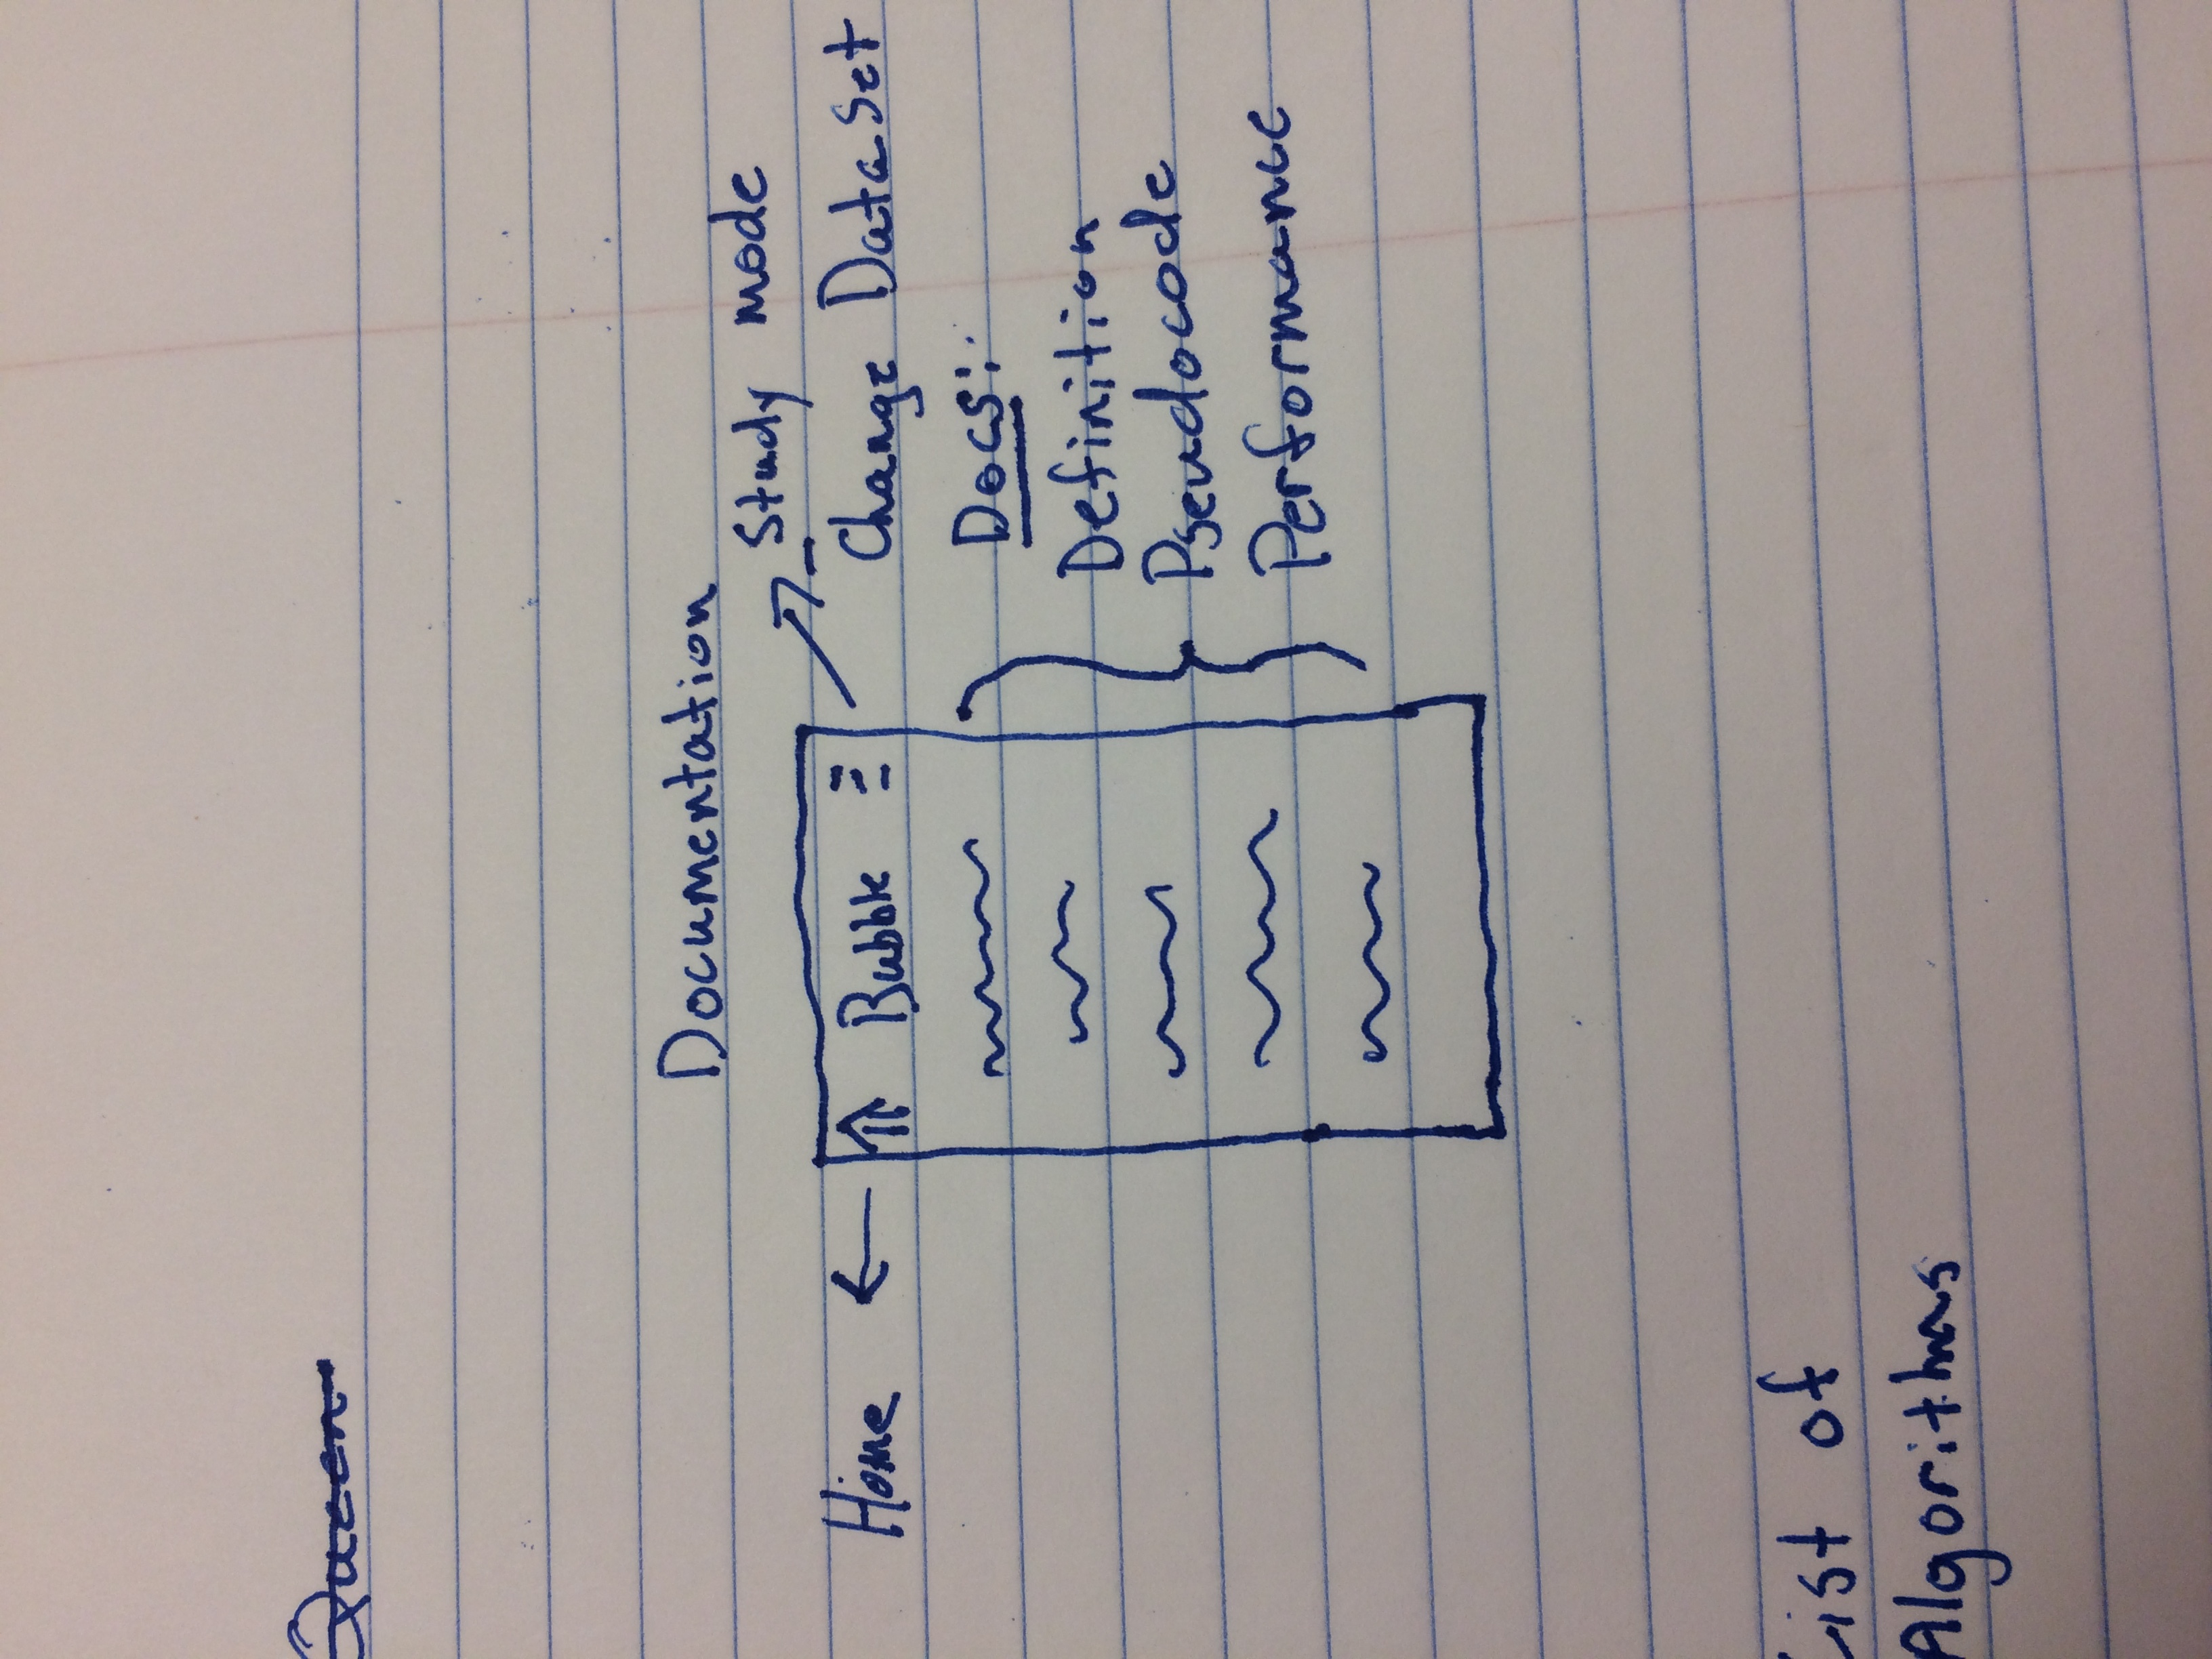 Queen
Documentation
Study mode
Home
Bubble
Change DataSet
Docs:
Definition
Pseudocode
Performance
List of
Algorithms